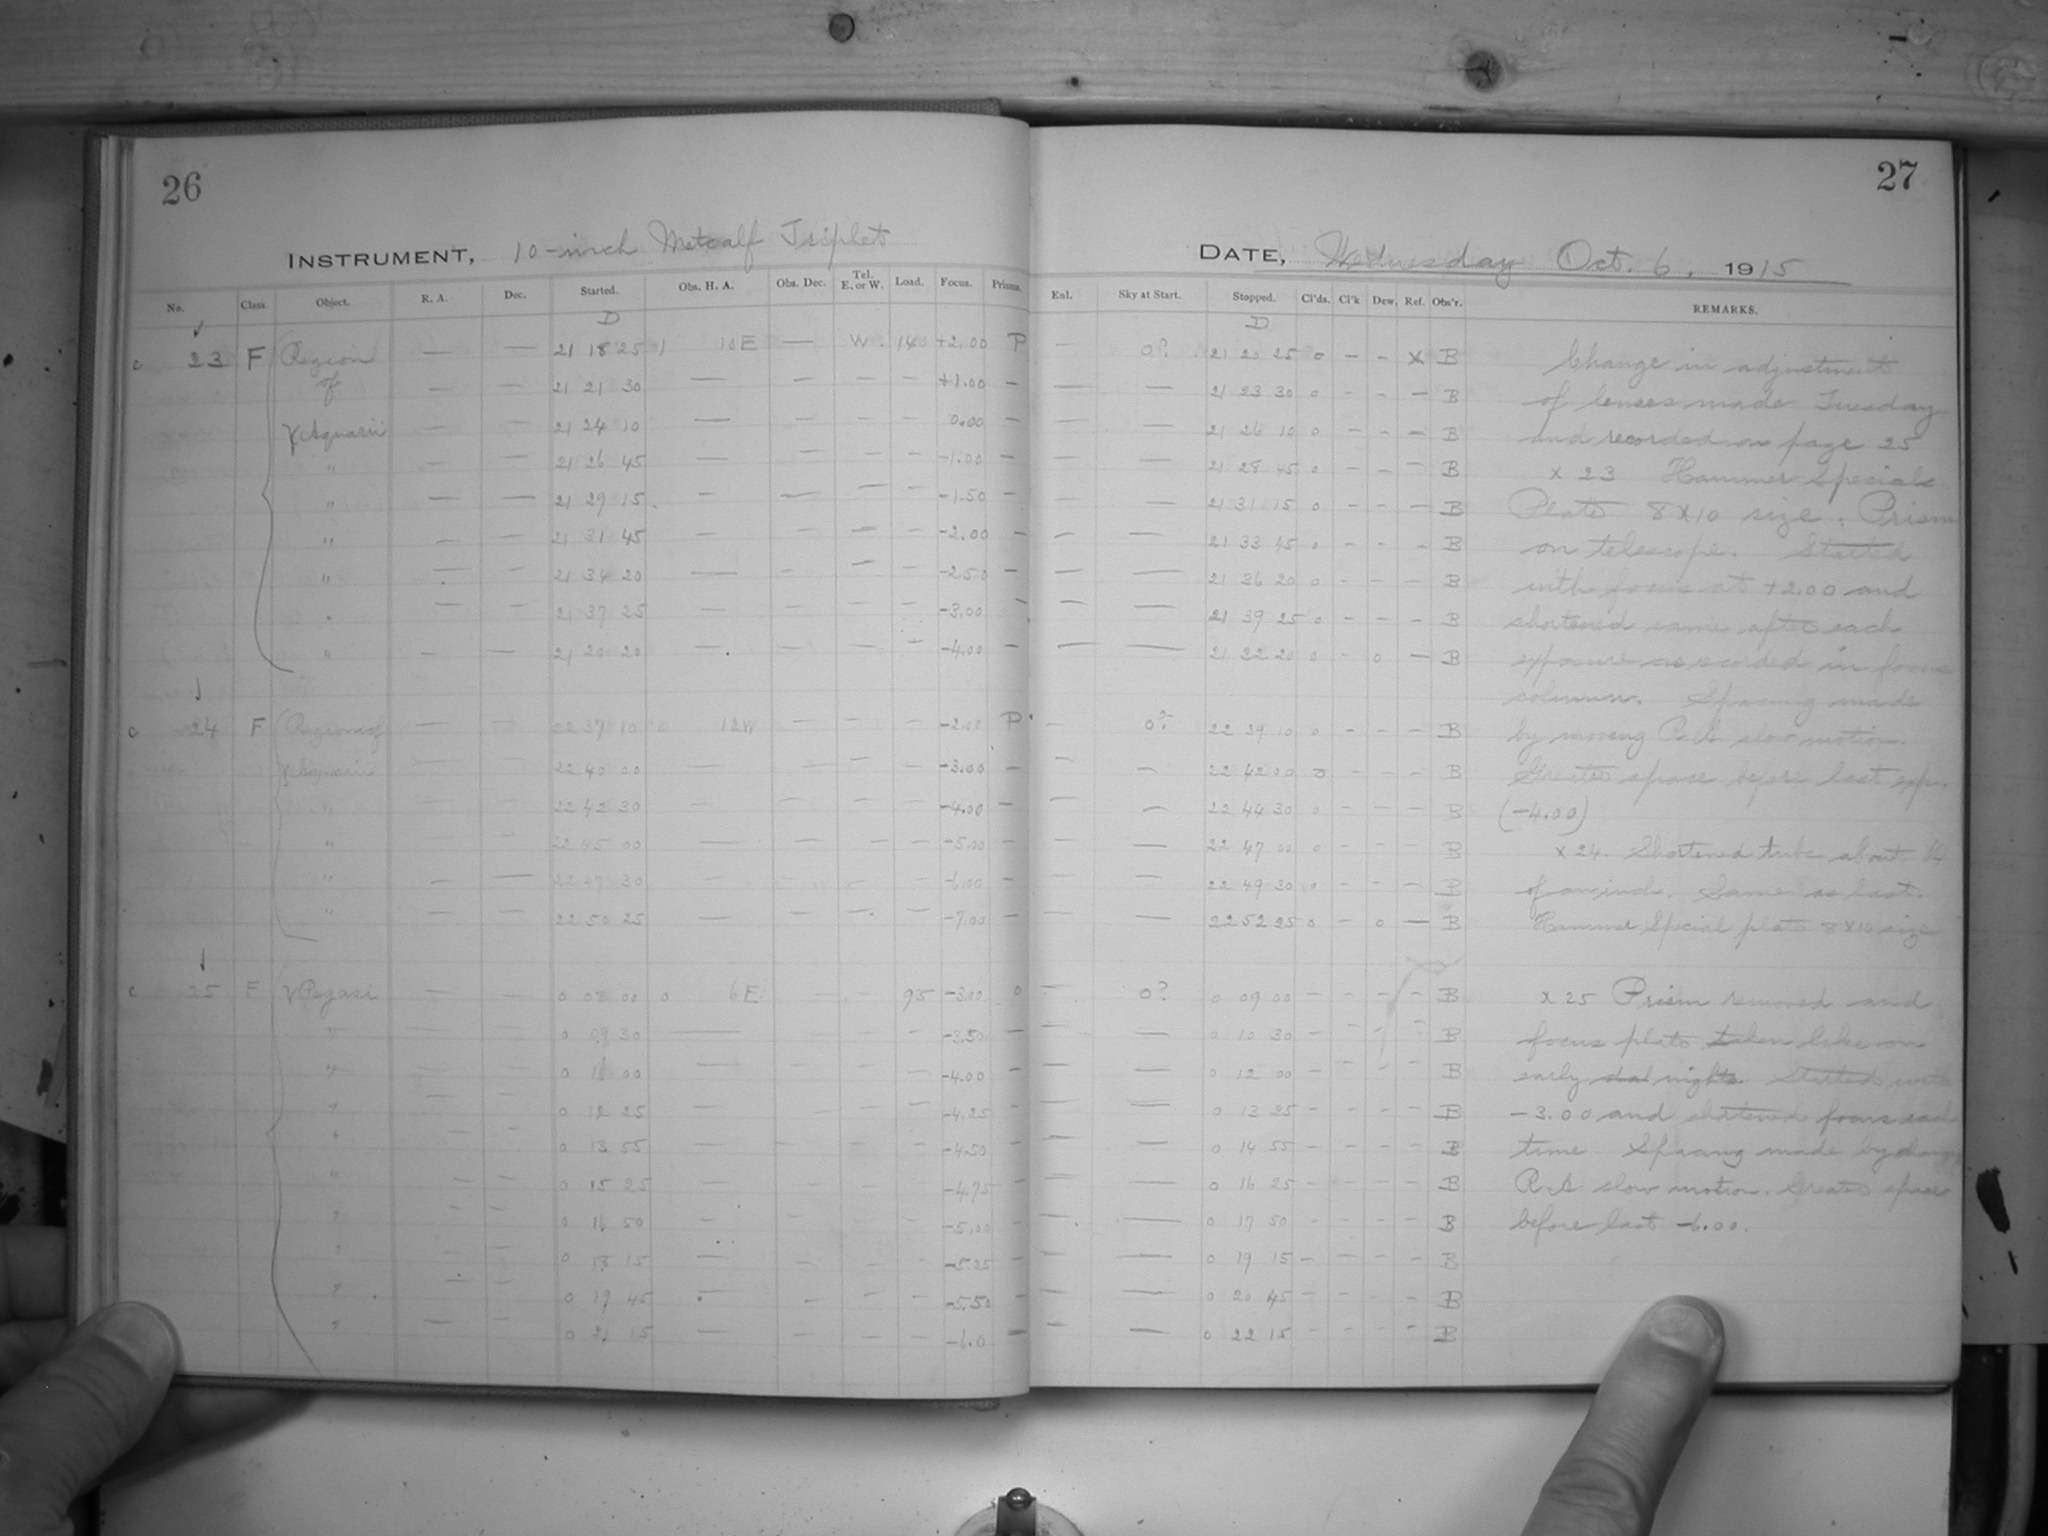 26
INSTRUMENT, 10-inch Metcalf Triplet
No. Class. Object. R. A. Dec. Started. Obs. H. A. Obs. Dec. Tel. E. or W. Load. Focus. Prisms.
D
c 23 F Region — — 21 18 25 1 10E — W. 140 +2.00 P
of — — 21 21 30 — — — — +1.00 —
γ Aquarii — — 21 24 10 — — — — 0.00 —
" — — 21 26 45 — — — — -1.00 —
" — — 21 29 15 — — — — -1.50 —
" — — 21 31 45 — — — — -2.00 —
" — — 21 34 20 — — — — -2.50 —
" — — 21 37 25 — — — — -3.00 —
" — — 21 20 20 — — -4.00 —
c 24 F Region of — — 22 37 10 0 12W — — — -2.00 P
γ Aquarii — — 22 40 00 — — — — -3.00 —
" — — 22 42 30 — — — — -4.00 —
" — — 22 45 00 — — — — -5.00 —
" — — 22 47 30 — — — — -6.00 —
" — — 22 50 25 — — — — -7.00 —
c 25 F γ Pegasi — — 0 08 00 0 6E — — 95 -3.00 0
" — — 0 09 30 — — — — -3.50 —
" — — 0 11 00 — — — — -4.00 —
" — — 0 12 25 — — — — -4.25 —
" — — 0 13 55 — — — — -4.50 —
" — — 0 15 25 — — — — -4.75 —
" — — 0 16 50 — — — — -5.00 —
" — — 0 18 15 — — — — -5.25 —
" — — 0 19 45 — — — — -5.50 —
" — — 0 21 15 — — — — -6.0 —
27
DATE, Wednesday Oct. 6, 1915
Enl. Sky at Start. Stopped. Cl'ds. Cl'k Dew, Ref. Obs'r. REMARKS.
D
— 0? 21 20 25 0 — — x B Change in adjustment
— — 21 23 30 0 — — — B of lenses made Tuesday
— — 21 26 10 0 — — — B and recorded on page 25
— — 21 28 45 0 — — — B x 23 Hammer Special
— — 21 31 15 0 — — — B Plate 8x10 size. Prism
— — 21 33 45 0 — — — B on telescope. Started
— — 21 36 20 0 — — — B with focus at +2.00 and
— — 21 39 25 0 — — — B shortened same after each
— — 21 22 20 0 — 0 — B exposure as recorded in focus
column. Spacing made
— 0? 22 39 10 0 — — — B by moving R.A slow motion.
— — 22 42 00 0 — — — B Greater space before last exp.
— — 22 44 30 0 — — — B (-4.00)
— — 22 47 00 0 — — — B x 24. Shortened tube about 1/4
— — 22 49 30 0 — — — B of an inch. Same as last.
— — 22 52 25 0 — 0 — B Hammer Special plate 8x10 size
— 0? 0 09 00 — — — — B x 25 Prism removed and
— — 0 10 30 — — — — B focus plate taken like on
— — 0 12 00 — — — — B early nights. Started with
— — 0 13 25 — — — — B -3.00 and shortened focus each
— — 0 14 55 — — — — B time Spacing made by
— — 0 16 25 — — — — B R.A slow motion. Greater space
— — 0 17 50 — — — — B before last -6.00.
— — 0 19 15 — — — — B
— — 0 20 45 — — — — B
— — 0 22 15 — — — — B